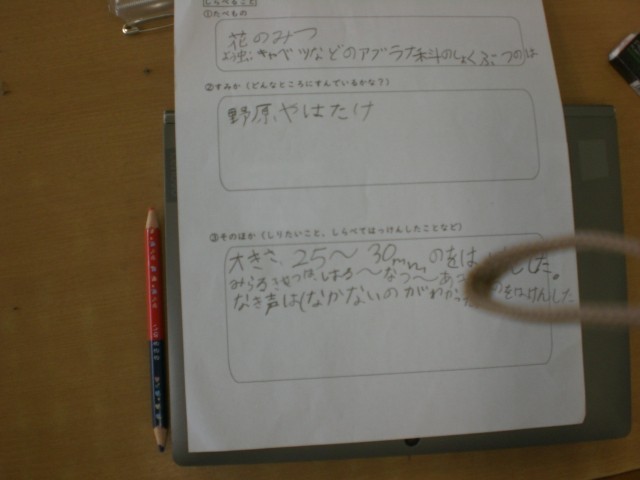 しらべること
①たべもの
花のみつ
よう虫 キャベツなどのアブラナ科のしょくぶつのは
②すみか（どんなところにすんでいるかな？）
野原、やはたけ
③そのほか（しりたいこと、しらべてはっけんしたことなど）
大きさ、25〜30mm のをは した。
みられるきせつは、はる〜なつ〜あき
なき声は(なかないの がわかった のをはけんした